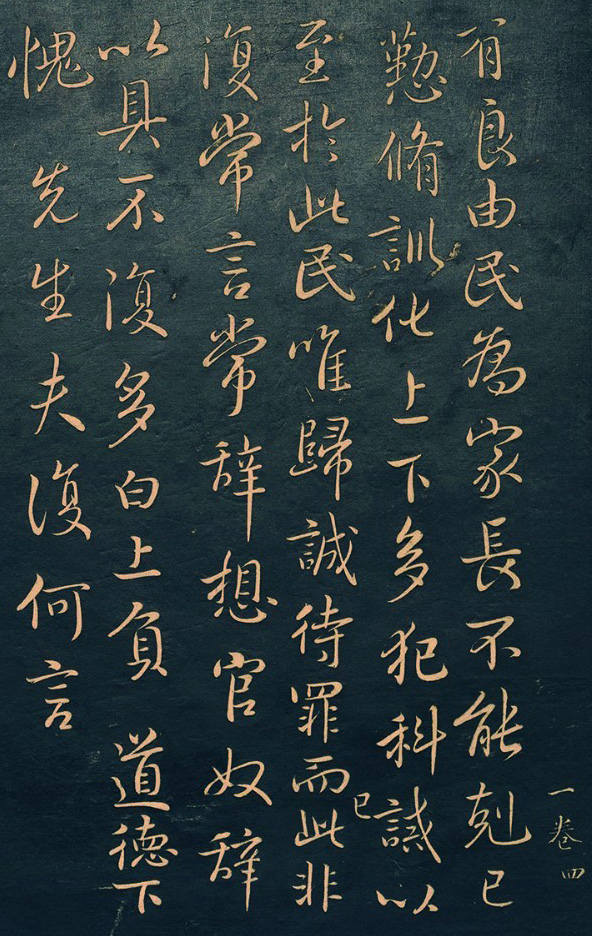 一卷四
有良由民為家長不能剋己
懃脩訓化上下多犯科誡以
至於此民唯歸誠待罪而此非
已
復常言常辭想官奴辭
以具不復多白上負道德下
愧先生夫復何言